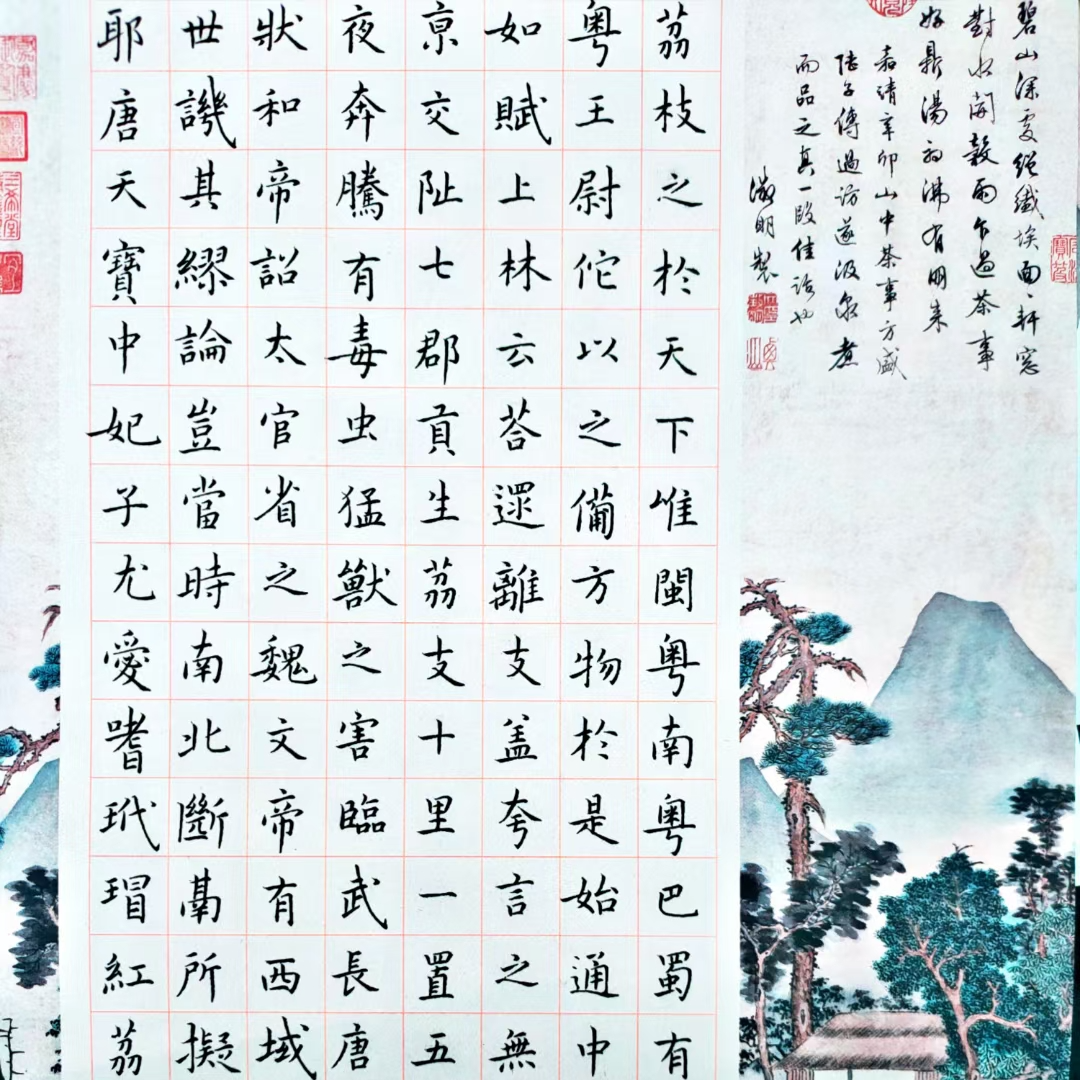 碧山深處絕纖埃面〻軒窓
對水開穀雨乍過茶事
好鼎湯初沸有朋来
嘉靖辛卯山中茶事方盛
陸子傅過訪遂汲泉煮
而品之真一段佳話也
徵明製
荔枝之於天下唯閩粤南粤巴蜀有
粤王尉佗以之備方物於是始通中
如賦上林云荅遝離支盖夸言之無
亰交阯七郡貢生荔支十里一置五
夜奔騰有毒虫猛獸之害臨武長唐
狀和帝詔太官省之魏文帝有西域
世譏其繆論豈當時南北斷鬲所擬
耶唐天寶中妃子尤愛嗜玳瑁紅荔